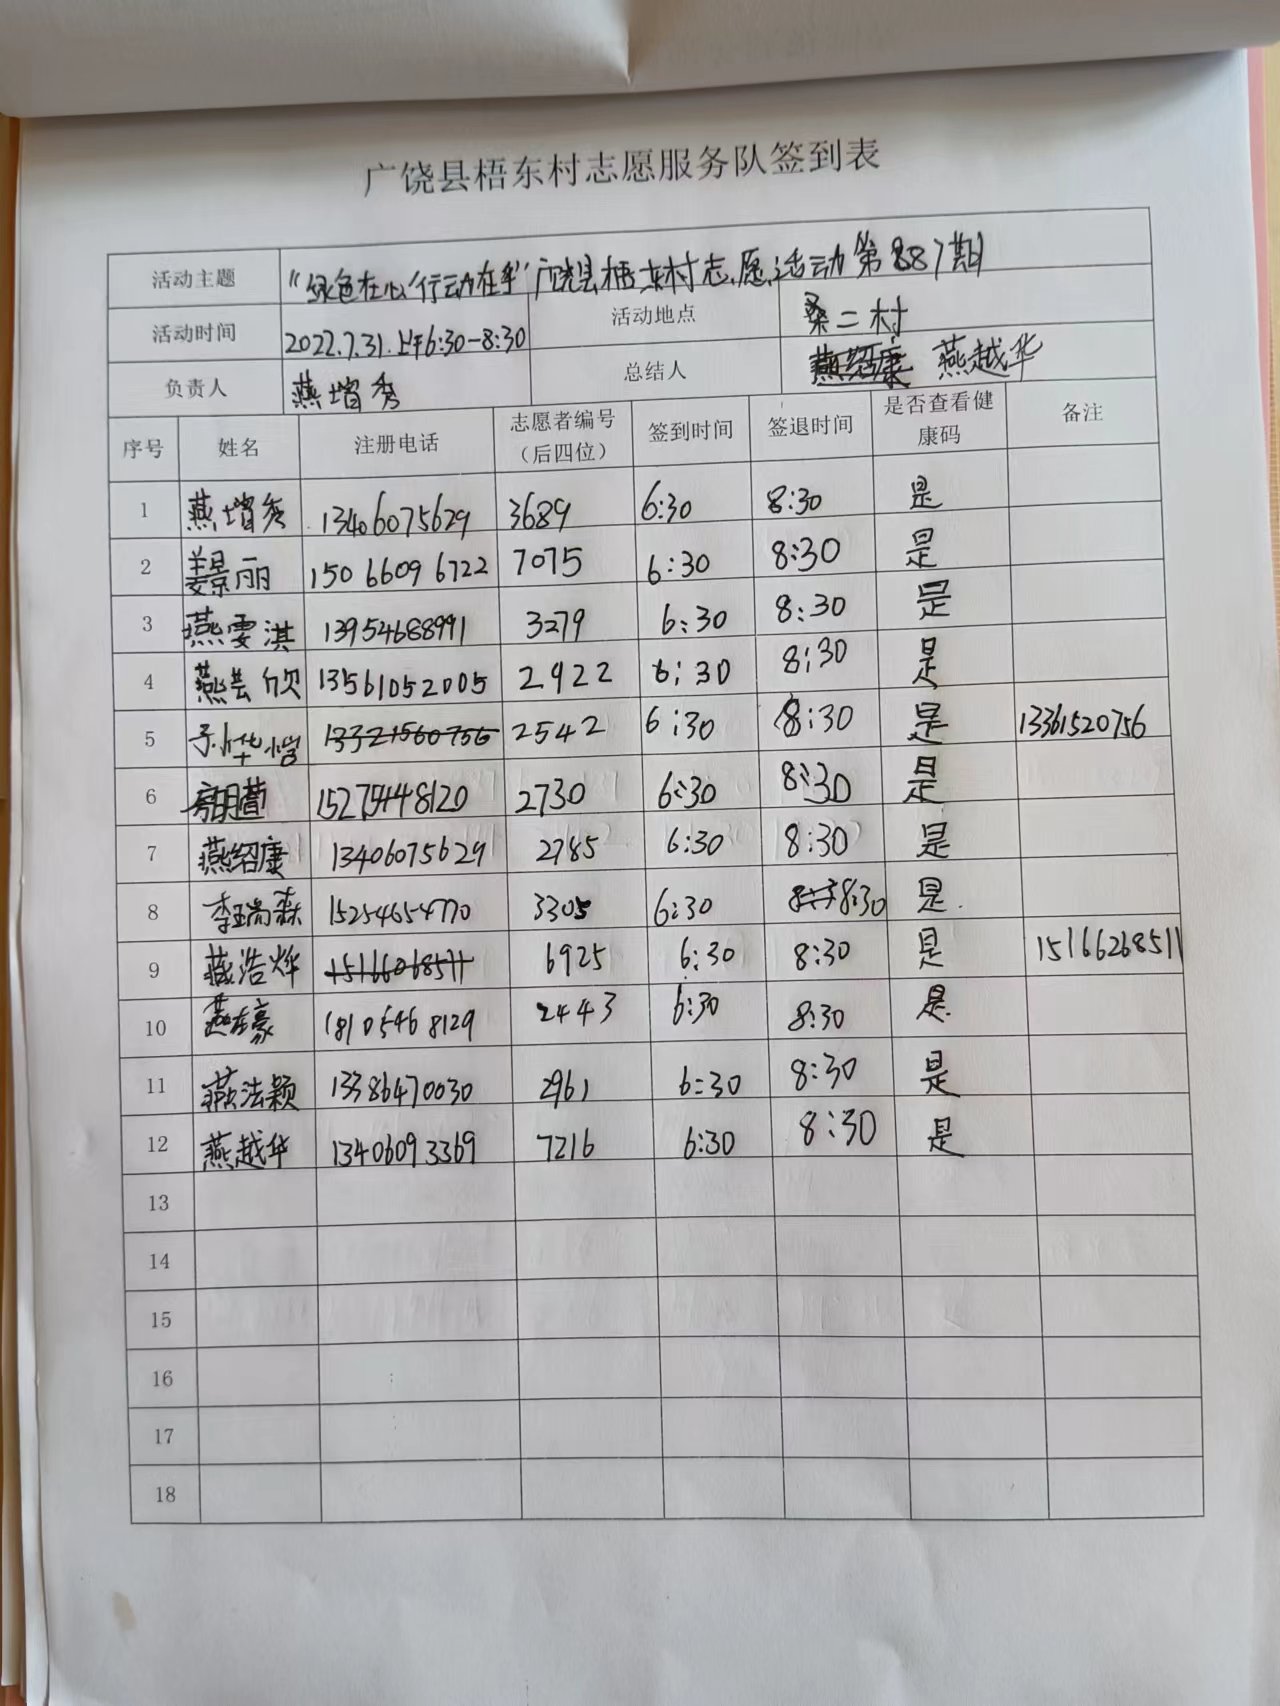 广饶县梧东村志愿服务队签到表
活动主题 “绿色在心 行动在手”广饶县梧东村志愿活动第887期
活动时间 2022.7.31.上午6:30-8:30 活动地点 桑二村
负责人 燕增秀 总结人 燕绍康 燕越华
序号 姓名 注册电话 志愿者编号（后四位） 签到时间 签退时间 是否查看健康码 备注
1 燕增秀 13406075629 3689 6:30 8:30 是
2 姜景丽 15066096722 7075 6:30 8:30 是
3 燕雯淇 13954688991 3279 6:30 8:30 是
4 燕芸欣 13561052005 2922 6:30 8:30 是
5 13321560756 2542 6:30 8:30 是 13361520756
6 15275448120 2730 6:30 8:30 是
7 燕绍康 13406075629 2785 6:30 8:30 是
8 李瑞森 15254654770 3305 6:30 8:30 是.
9 浩烨 15166068511 6925 6:30 8:30 是 15166268511
10 燕豪 18105468129 2443 6:30 8:30 是.
11 燕法颖 13386470030 2961 6:30 8:30 是
12 燕越华 13406093369 7216 6:30 8:30 是
13
14
15
16
17
18